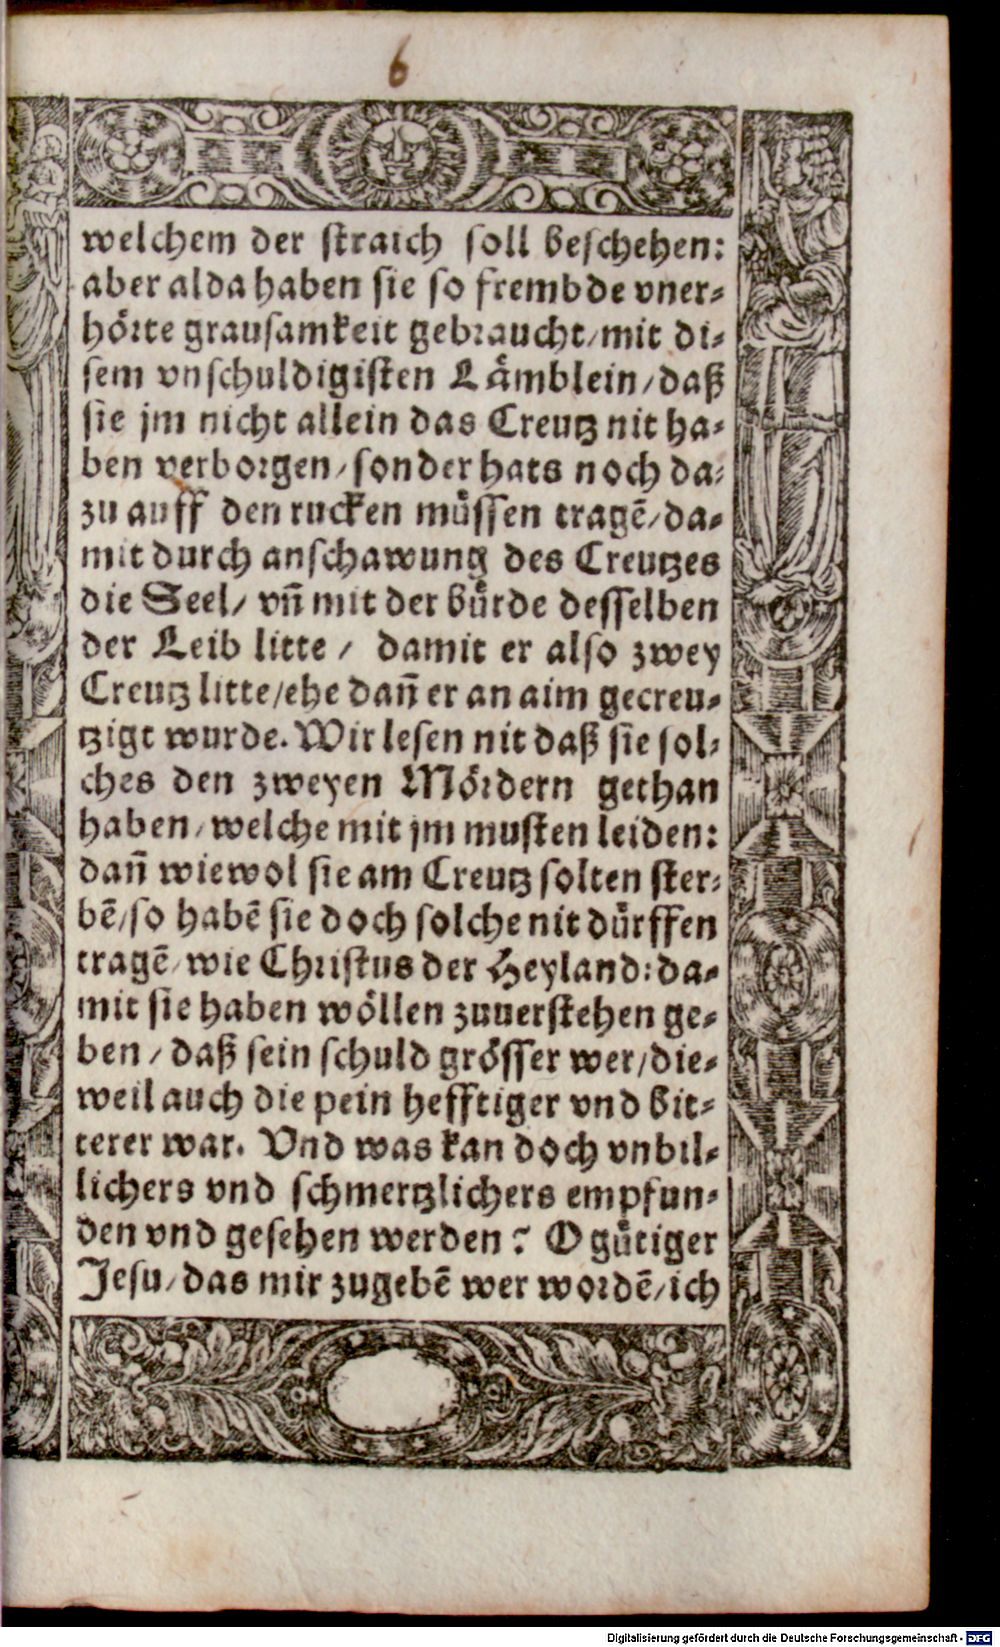 6
welchem der straich soll beschehen:
aber alda haben sie so frembde vner-
hörte grausamkeit gebraucht/mit di-
sem vnschuldigisten Lämblein/daß
sie jm nicht allein das Creutz nit ha-
ben verborgen/sonder hats noch da-
zu auff den rucken müssen tragē/da-
mit durch anschawung des Creutzes
die Seel/ vn̄ mit der bürde desselben
der Leib litte / damit er also zwey
Creutz litte/ehe dan̄ er an aim gecreu-
tzigt wurde. Wir lesen nit daß sie sol-
ches den zweyen Mördern gethan
haben/welche mit jm musten leiden:
dan̄ wiewol sie am Creutz solten ster-
bē/so habē sie doch solche nit dürffen
tragē/wie Christus der Heyland:da-
mit sie haben wöllen zuuerstehen ge-
ben/daß sein schuld grösser wer/die-
weil auch die pein hefftiger vnd bit-
terer war. Vnd was kan doch vnbil-
lichers vnd schmertzlichers empfun-
den vnd gesehen werden? O gütiger
Jesu/das mir zugebē wer wordē/ich
Digitalisierung gefördert durch die Deutsche Forschungsgemeinschaft - DFG